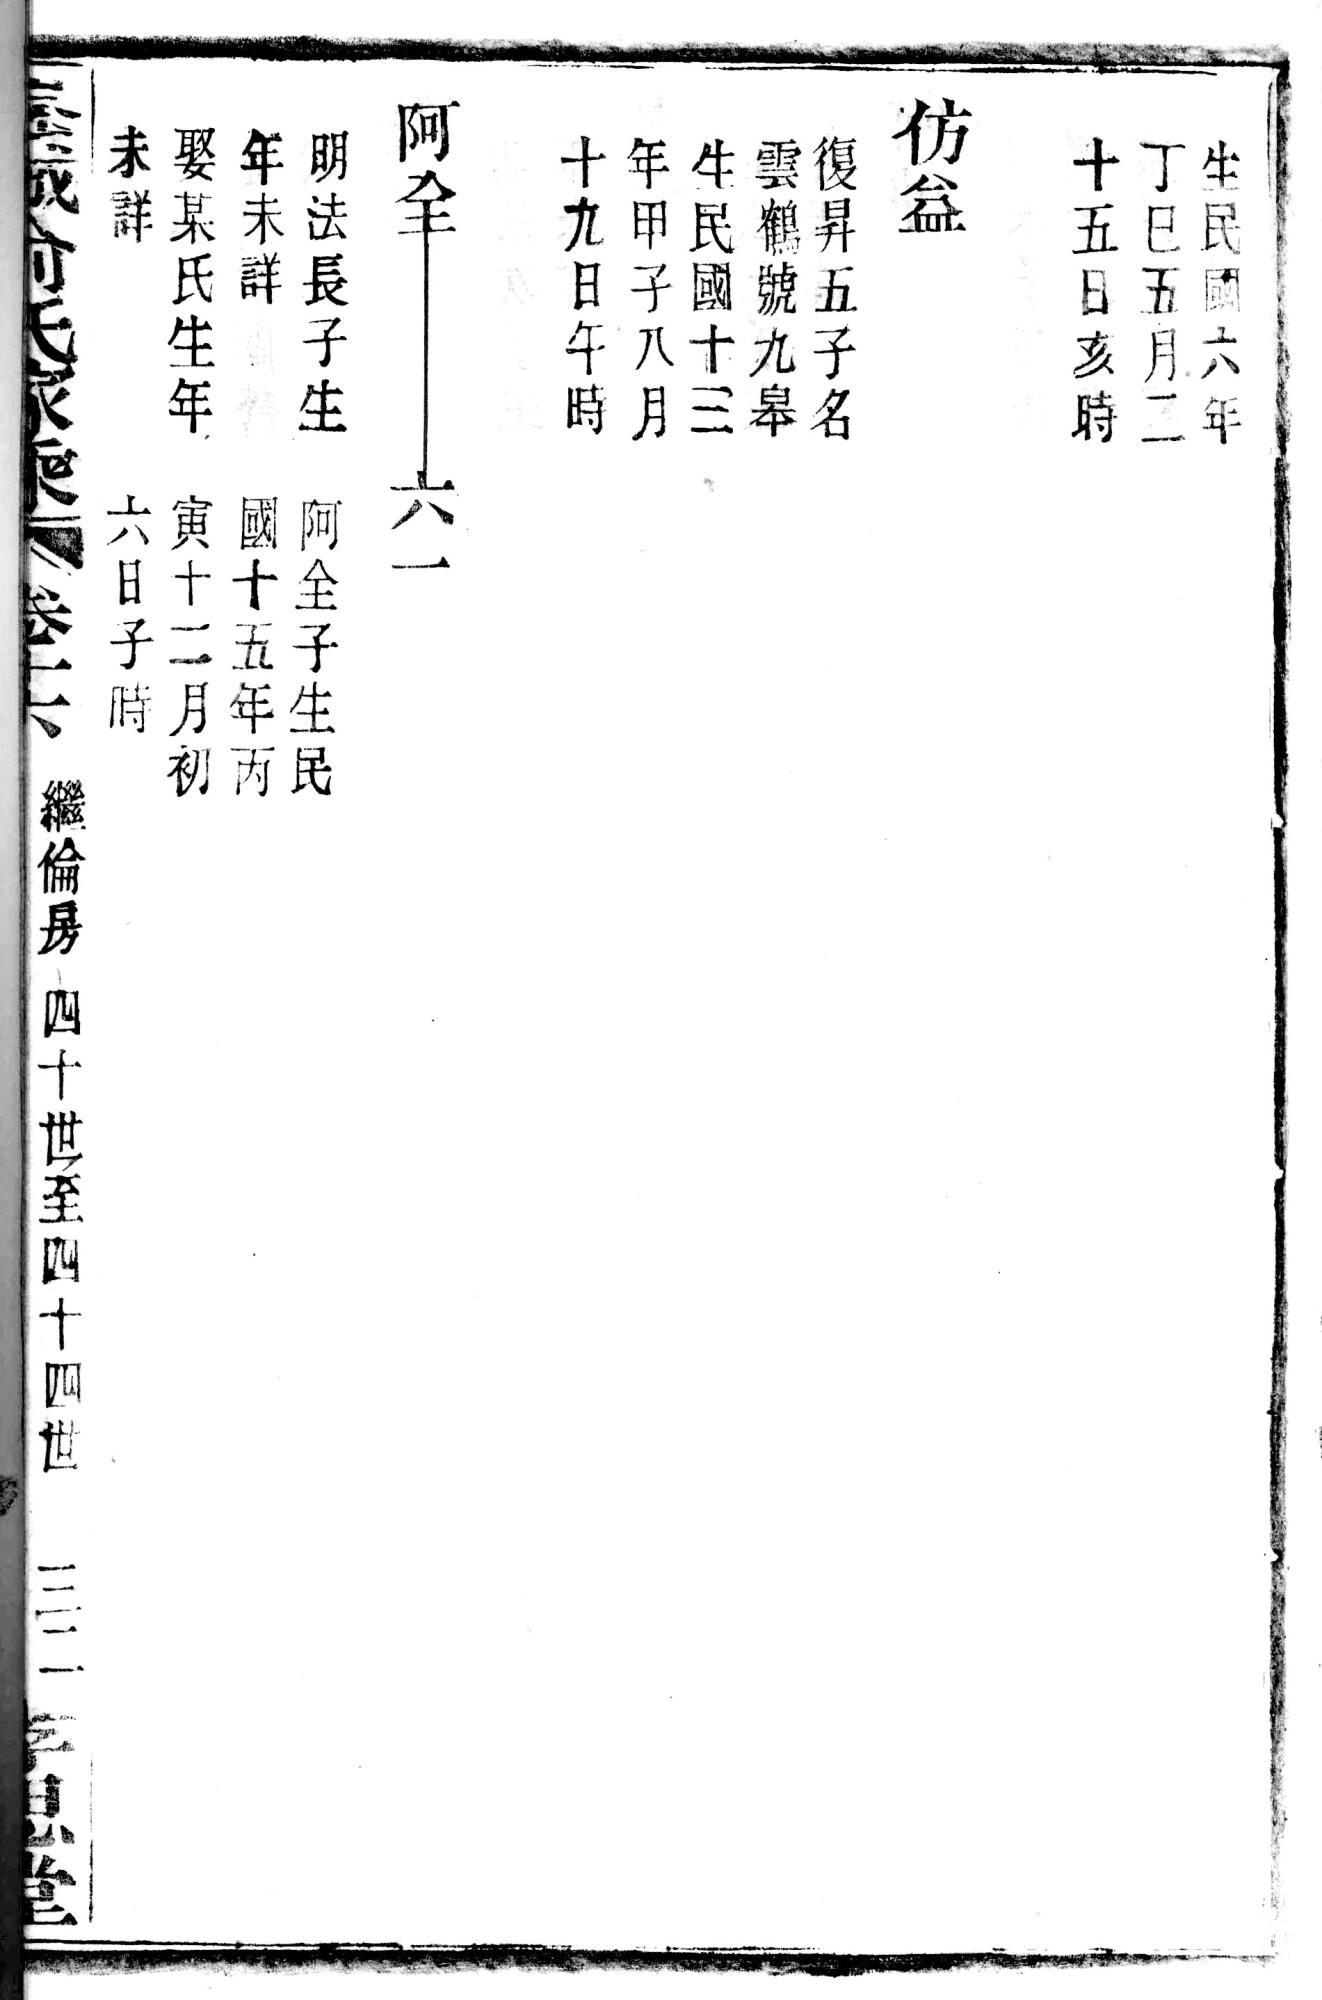 生民國六年
丁巳五月二
十五日亥時
仿益
復昇五子名
雲鶴號九皋
生民國十三
年甲子八月
十九日午時
阿全
六一
明法長子生
年未詳
娶某氏生年
未詳
阿全子生民
國十五年丙
寅十二月初
六日子時
俞氏家乘
卷十六
繼倫房
四十世至四十四世
思堂